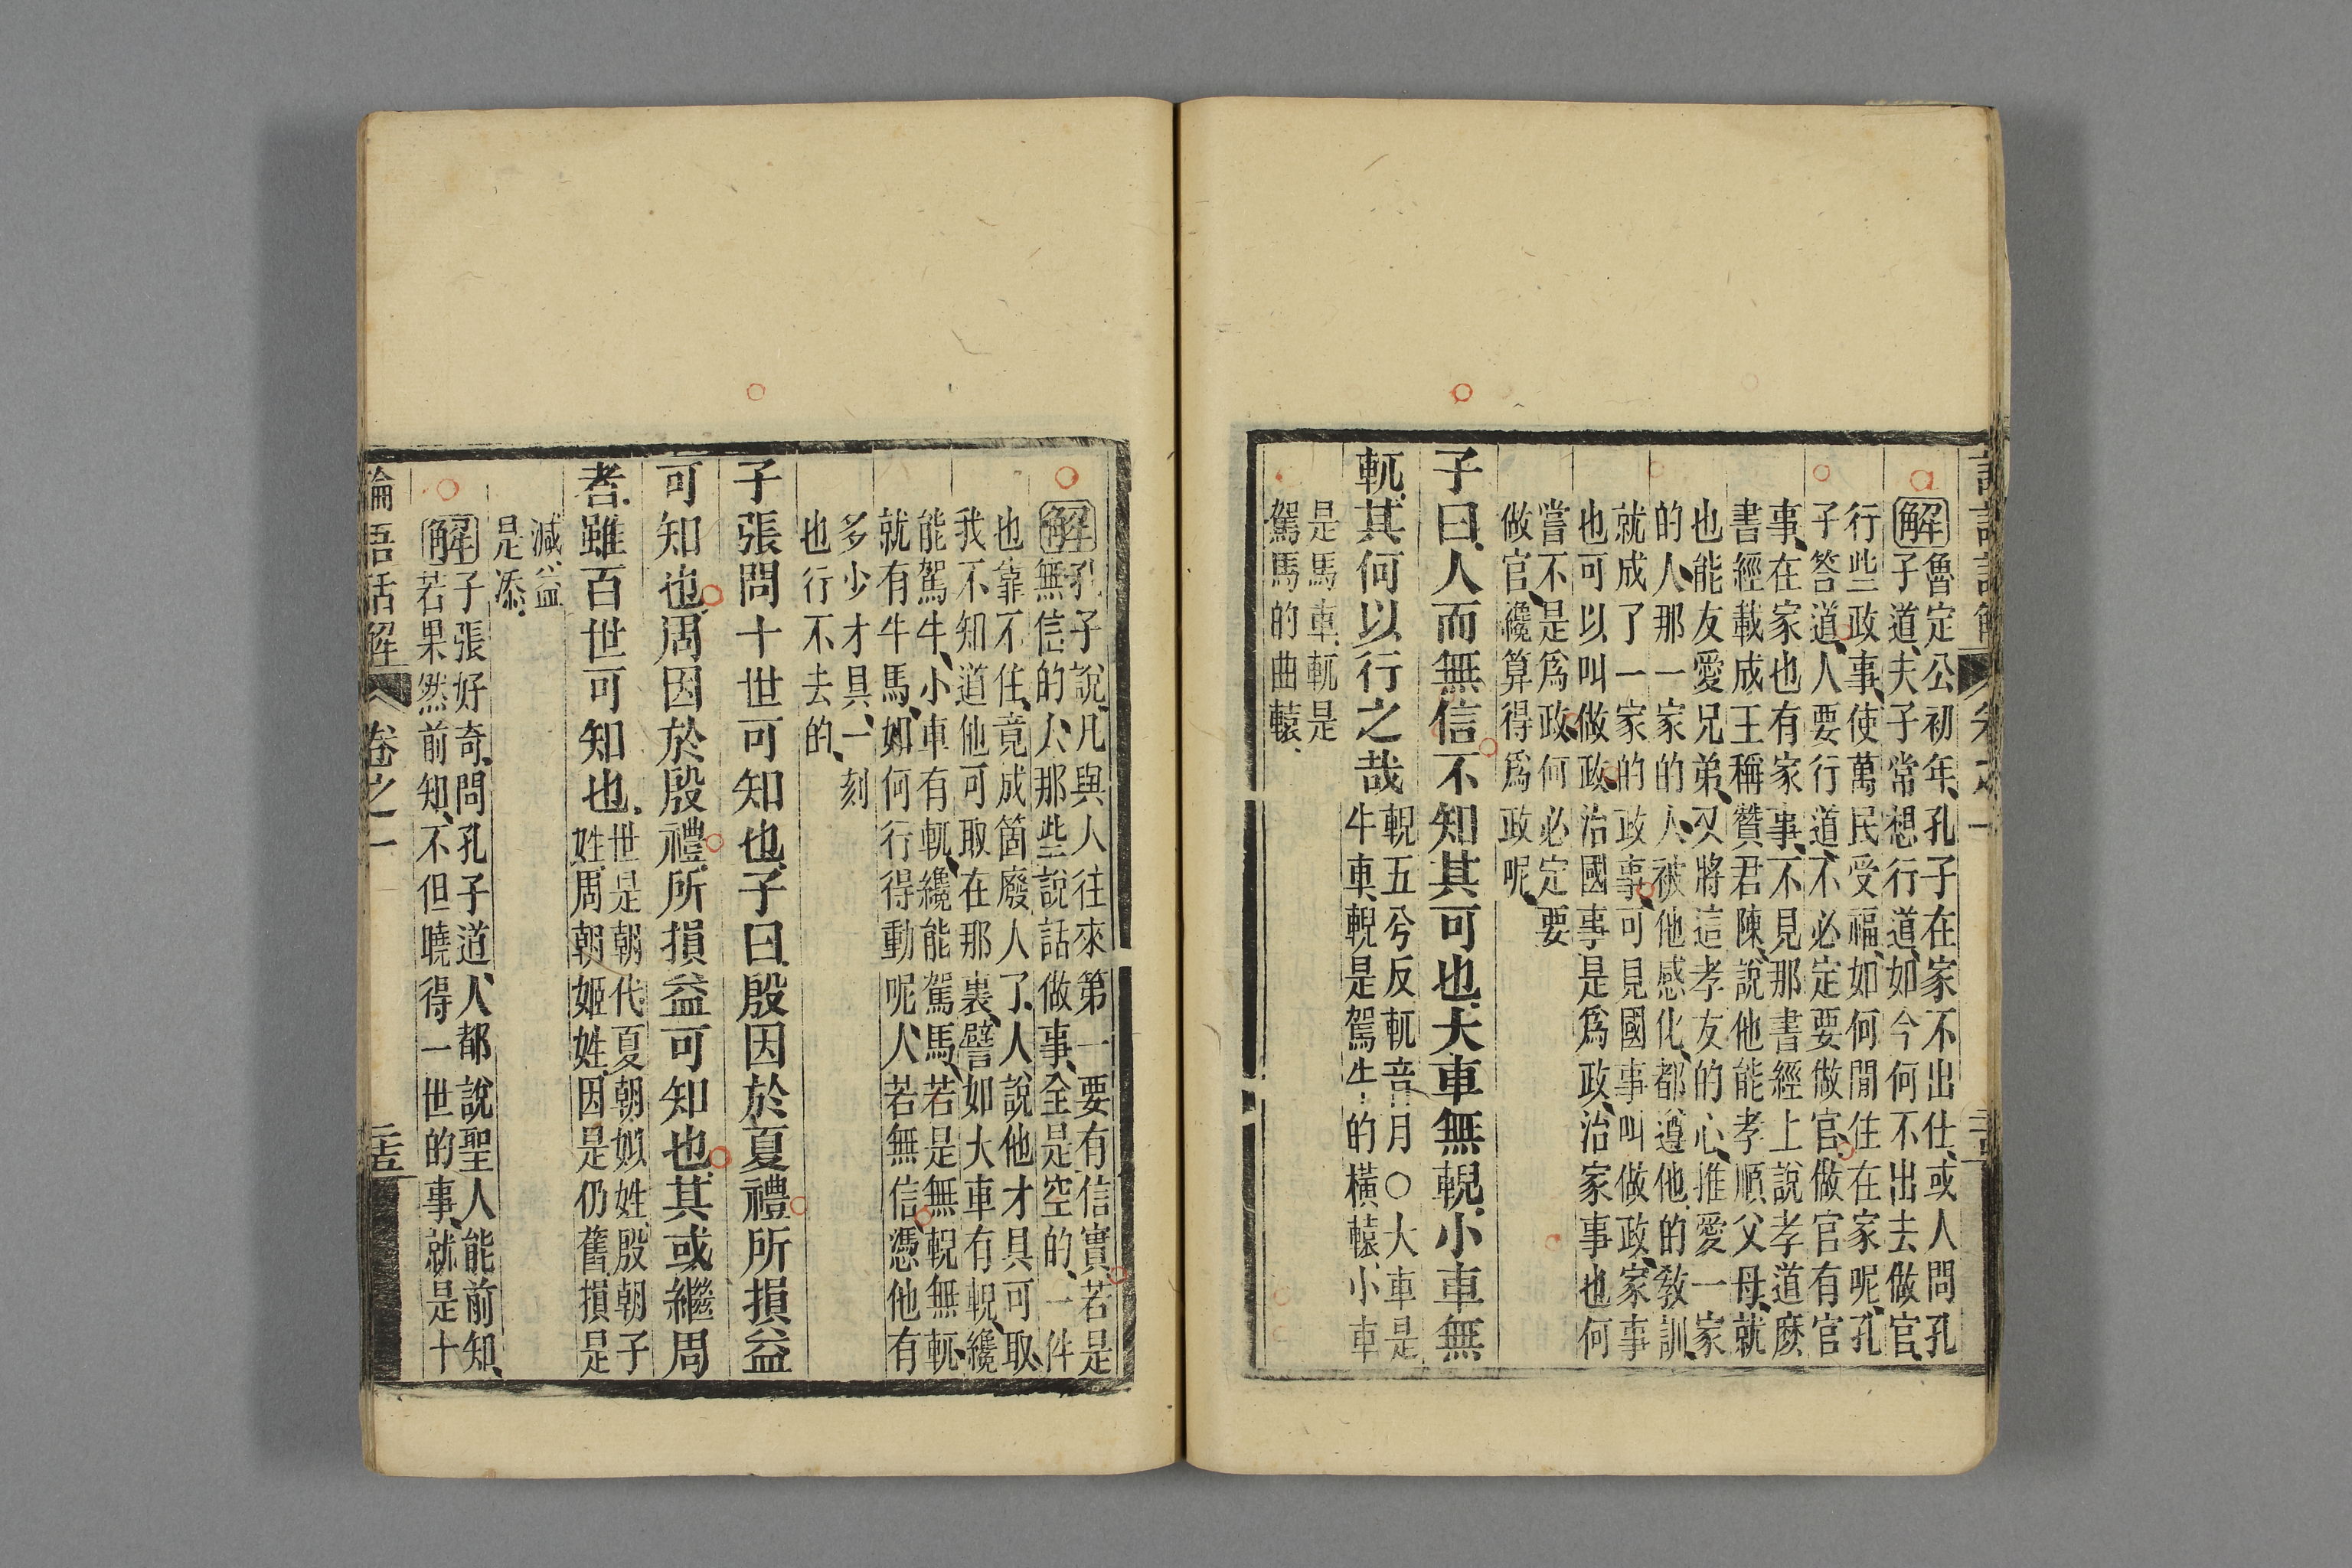 解 魯定公初年、孔子在家不出仕、或人問孔
子道、夫子常想行道、如今何不出去做官、
行些政事、使萬民受福、如何閒住在家呢、孔
子答道、人要行道、不必定要做官、做官有官
事、在家也有家事、不見那書經上說孝道麽
書經載成王稱贊君陳、說他能孝順父母、就
也能友愛兄弟、又將這孝友的心、推愛一家
的人、那一家的人、被他感化、都遵他的教訓、
就成了一家的政事、可見國事叫做政、家事
也可以叫做政、治國事是爲政、治家事也何
嘗不是爲政、何必定要
做官、纔算得爲政呢、
子曰、人而無信、不知其可也、大車無輗、小車無
軏、其何以行之哉
輗五兮反軏音月○大車是
牛車、輗是駕牛的橫轅、小車
是馬車、軏是
駕馬的曲轅、
解 孔子說、凡與人往來、第一要有信實、若是
無信的人、那些說話做事、全是空的、一件
也靠不住、竟成箇廢人了、人說他才具可取、
我不知道他可取在那裏、譬如大車有輗、纔
能駕牛、小車有軏、纔能駕馬、若是無輗無軏、
就有牛馬、如何行得動呢、人若無信、憑他有
多少才具、一刻
也行不去的、
子張問十世可知也、子曰、殷因於夏禮、所損益
可知也、周因於殷禮、所損益可知也、其或繼周
者、雖百世可知也、
世是朝代、夏朝姒姓、殷朝子
姓、周朝姬姓、因是仍舊、損是
減、益
是添、
解 子張好奇、問孔子道、人都說聖人能前知、
若果然前知、不但曉得一世的事、就是十
論語話解 卷之一